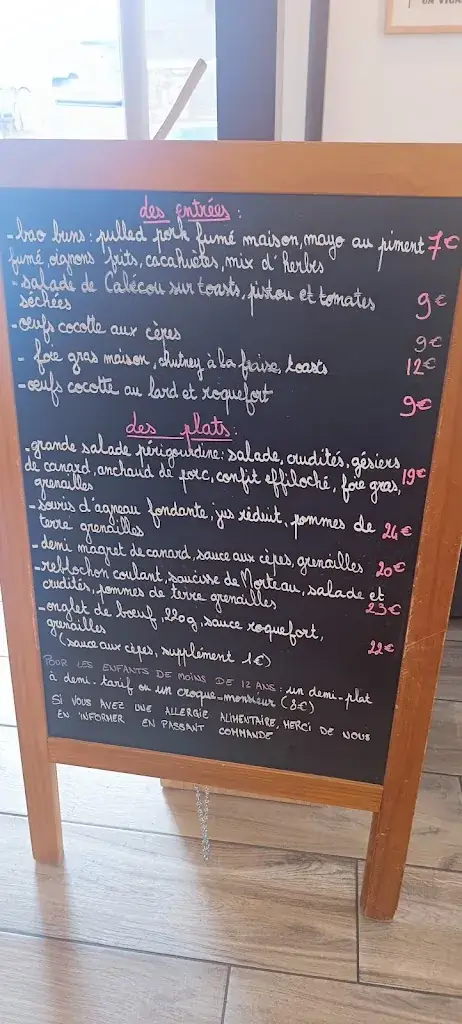 des entrées :
- bao buns : pulled pork fumé maison, mayo au piment 7€
fumé, oignons frits, cacahuètes, mix d'herbes
- salade de Cabécou sur toasts, pistou et tomates
séchées 9€
- oeufs cocotte aux cèpes 9€
- foie gras maison, chutney à la fraise, toasts 12€
- oeufs cocotte au lard et roquefort 9€
des plats :
- grande salade périgourdine : salade, crudités, gésiers
de canard, anchaud de porc, confit effiloché, foie gras, 19€
grenailles
- souris d'agneau fondante, jus réduit, pommes de
terre grenailles 24€
- demi magret de canard, sauce aux cèpes, grenailles 20€
- reblochon coulant, saucisse de Morteau, salade et
crudités, pommes de terre grenailles 23€
- onglet de boeuf, 220g, sauce roquefort,
grenailles 22€
(sauce aux cèpes, supplément 1€)
POUR LES ENFANTS DE MOINS DE 12 ANS : un demi-plat
à demi-tarif ou un croque-monsieur (8€)
SI VOUS AVEZ UNE ALLERGIE ALIMENTAIRE, MERCI DE NOUS
EN INFORMER EN PASSANT COMMANDE